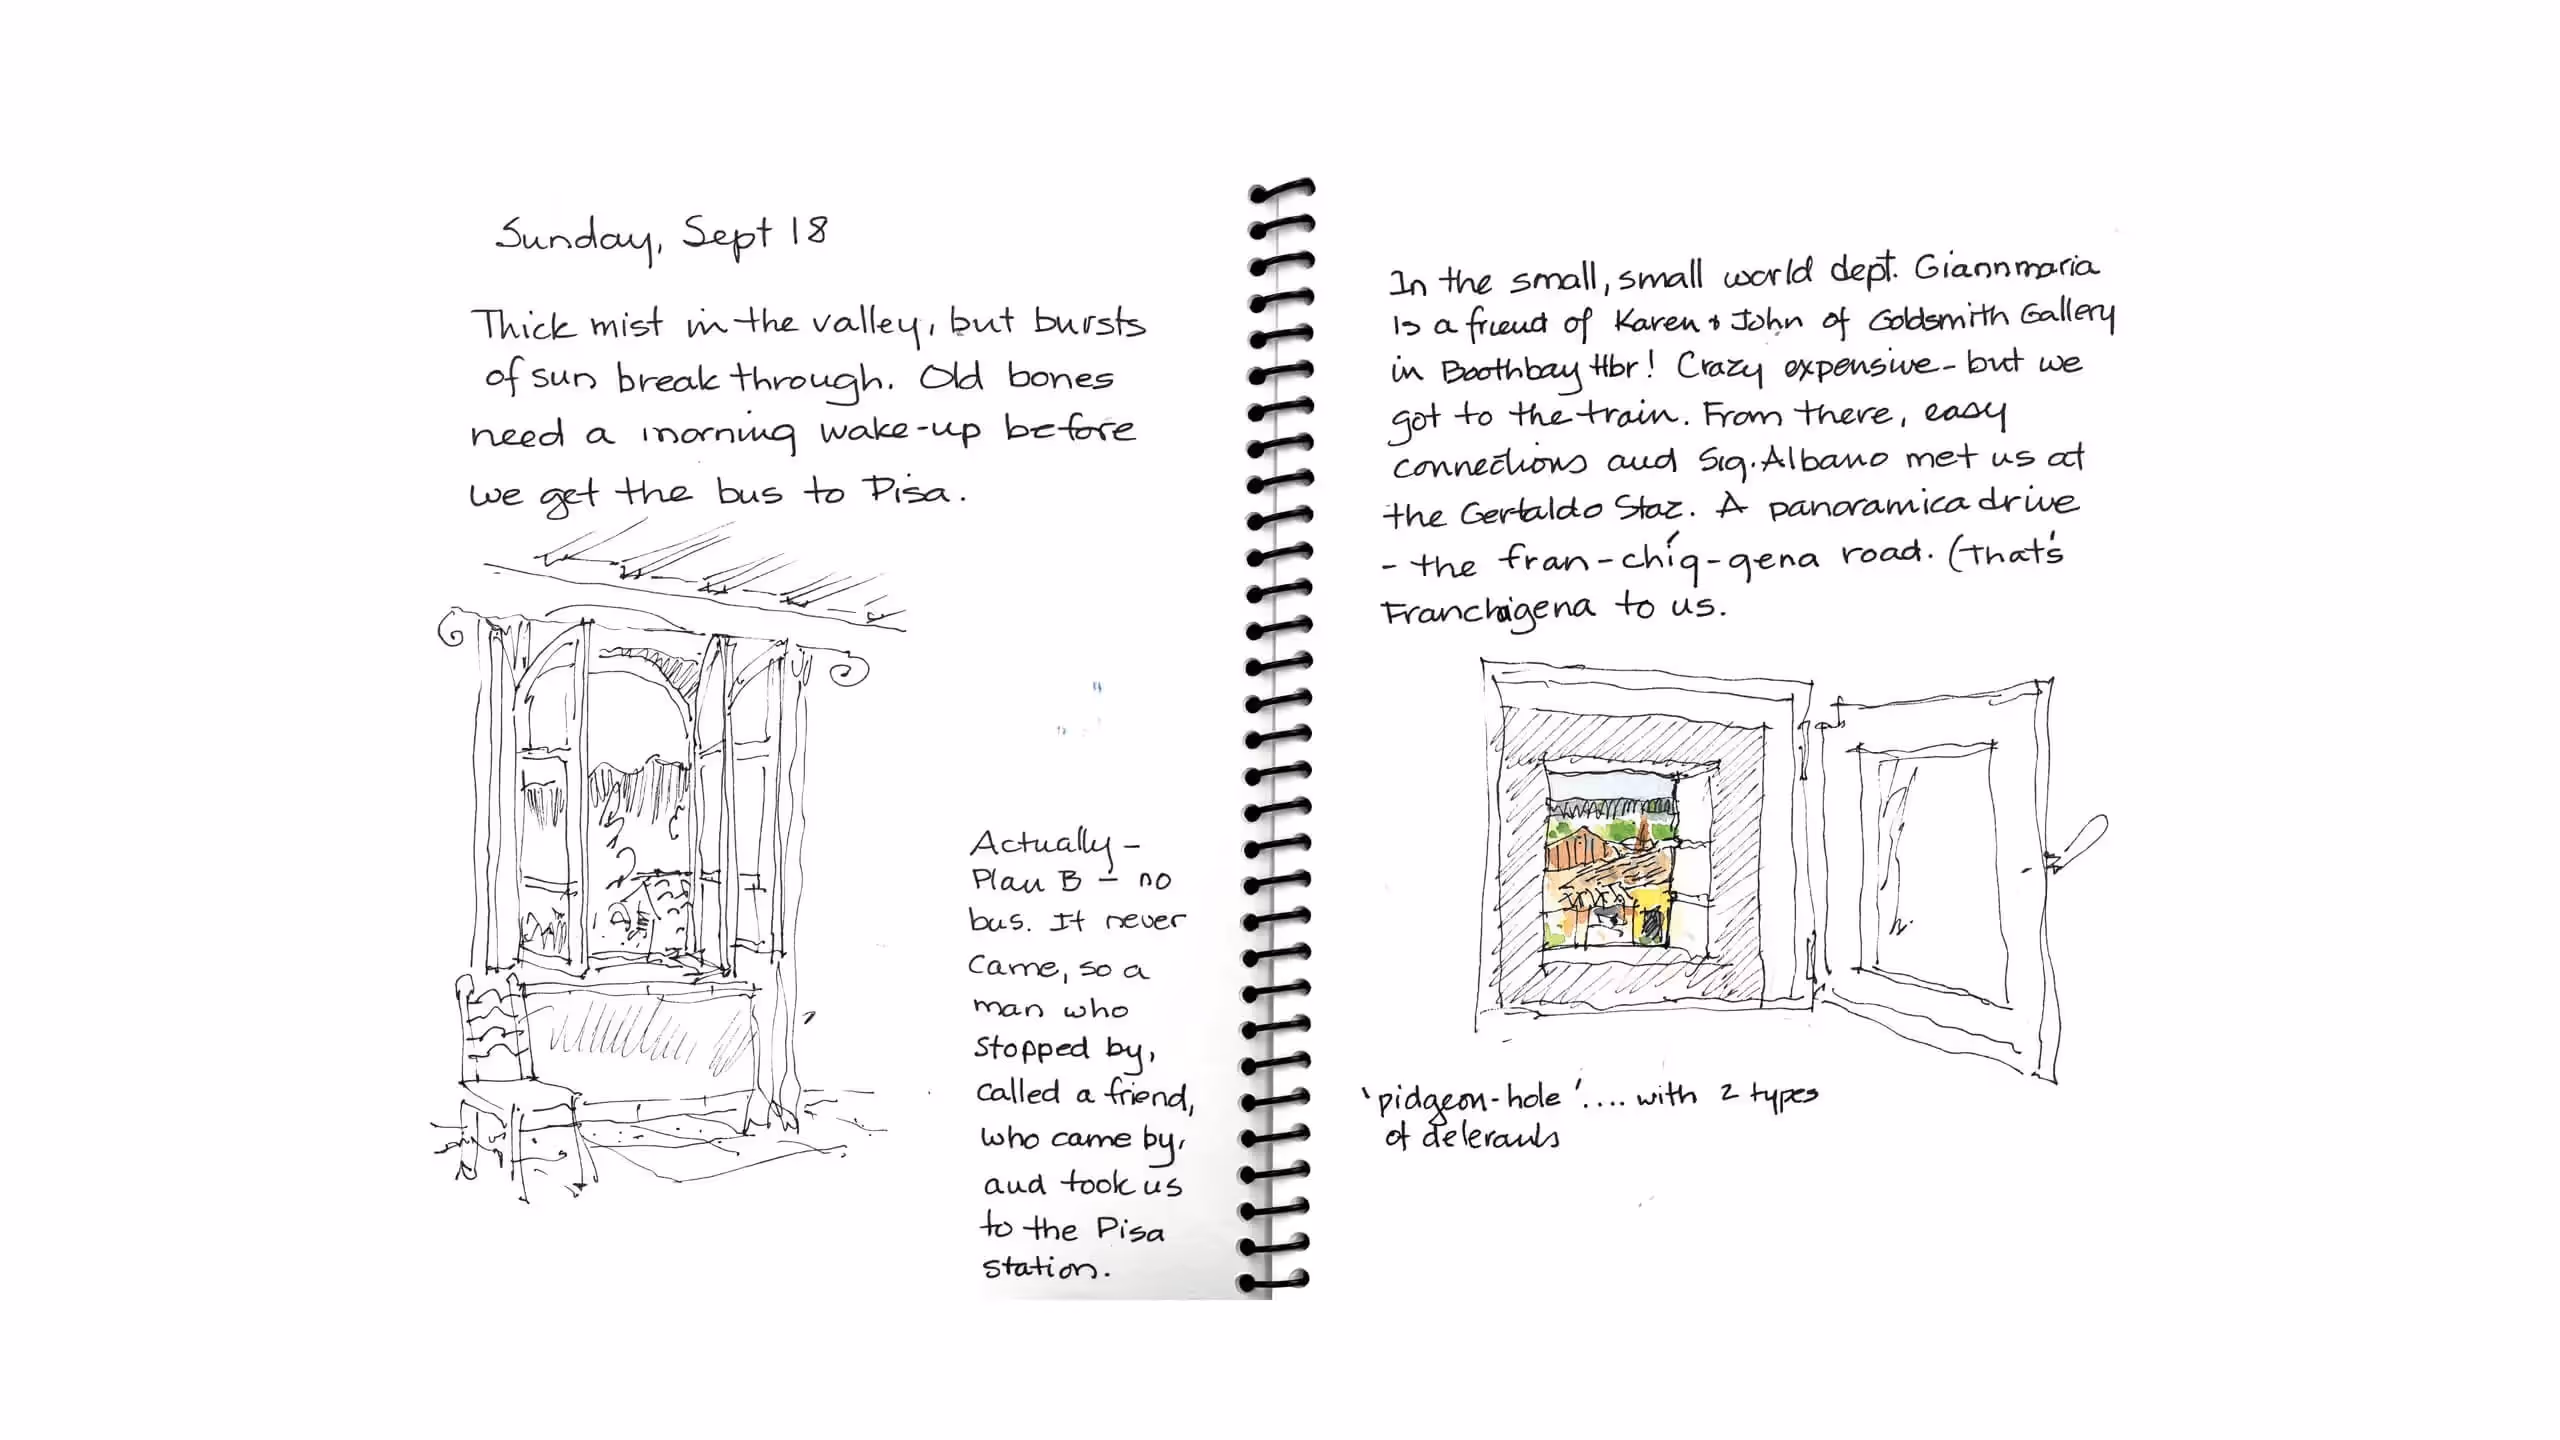 Sunday, Sept 18
Thick mist in the valley, but bursts
of sun break through. Old bones
need a morning wake-up before
we get the bus to Pisa.
Actually -
Plan B - no
bus. It never
came, so a
man who
stopped by,
called a friend,
who came by,
and took us
to the Pisa
station.
In the small, small world dept. Giannmaria
is a friend of Karen + John of Goldsmith Gallery
in Boothbay Hbr! Crazy expensive - but we
got to the train. From there, easy
connections and Sig. Albano met us at
the Certaldo Staz. A panoramica drive
- the fran-chíg-gena road. (That's
Franchigena to us.
'pidgeon-hole'.... with 2 types
of